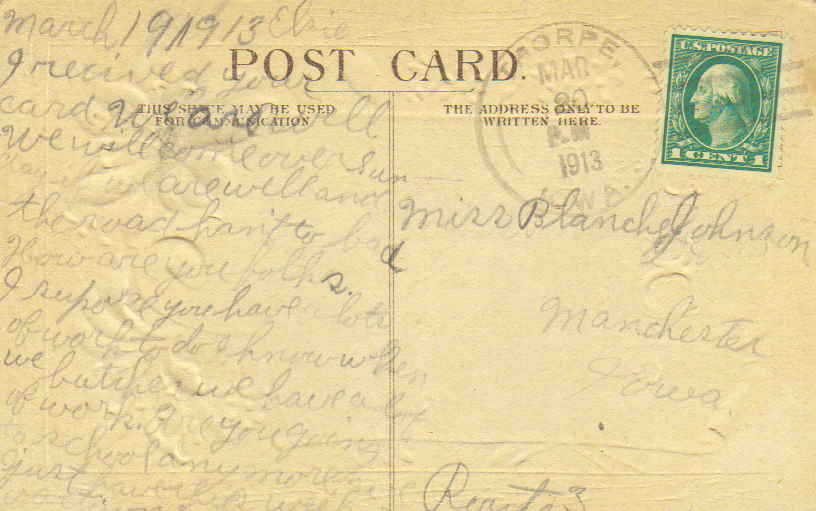 March 19 1913 Elsie
I recived your
card. We are well
We will come over sun
we are well and
the road han't to bad
How are you folks.
I supose you have lots
of work to do I know when
we butcher we have a lot
of work. Are you going
to school any more
just have this week
POST CARD.
THIS SPACE MAY BE USED
FOR COMMUNICATION
THE ADDRESS ONLY TO BE
WRITTEN HERE.
THORPE
MAR
20
A.M
1913
IOWA.
U.S. POSTAGE
1 CENT 1
Miss Blanche Johnson
Manchester
Iowa.
Route 3